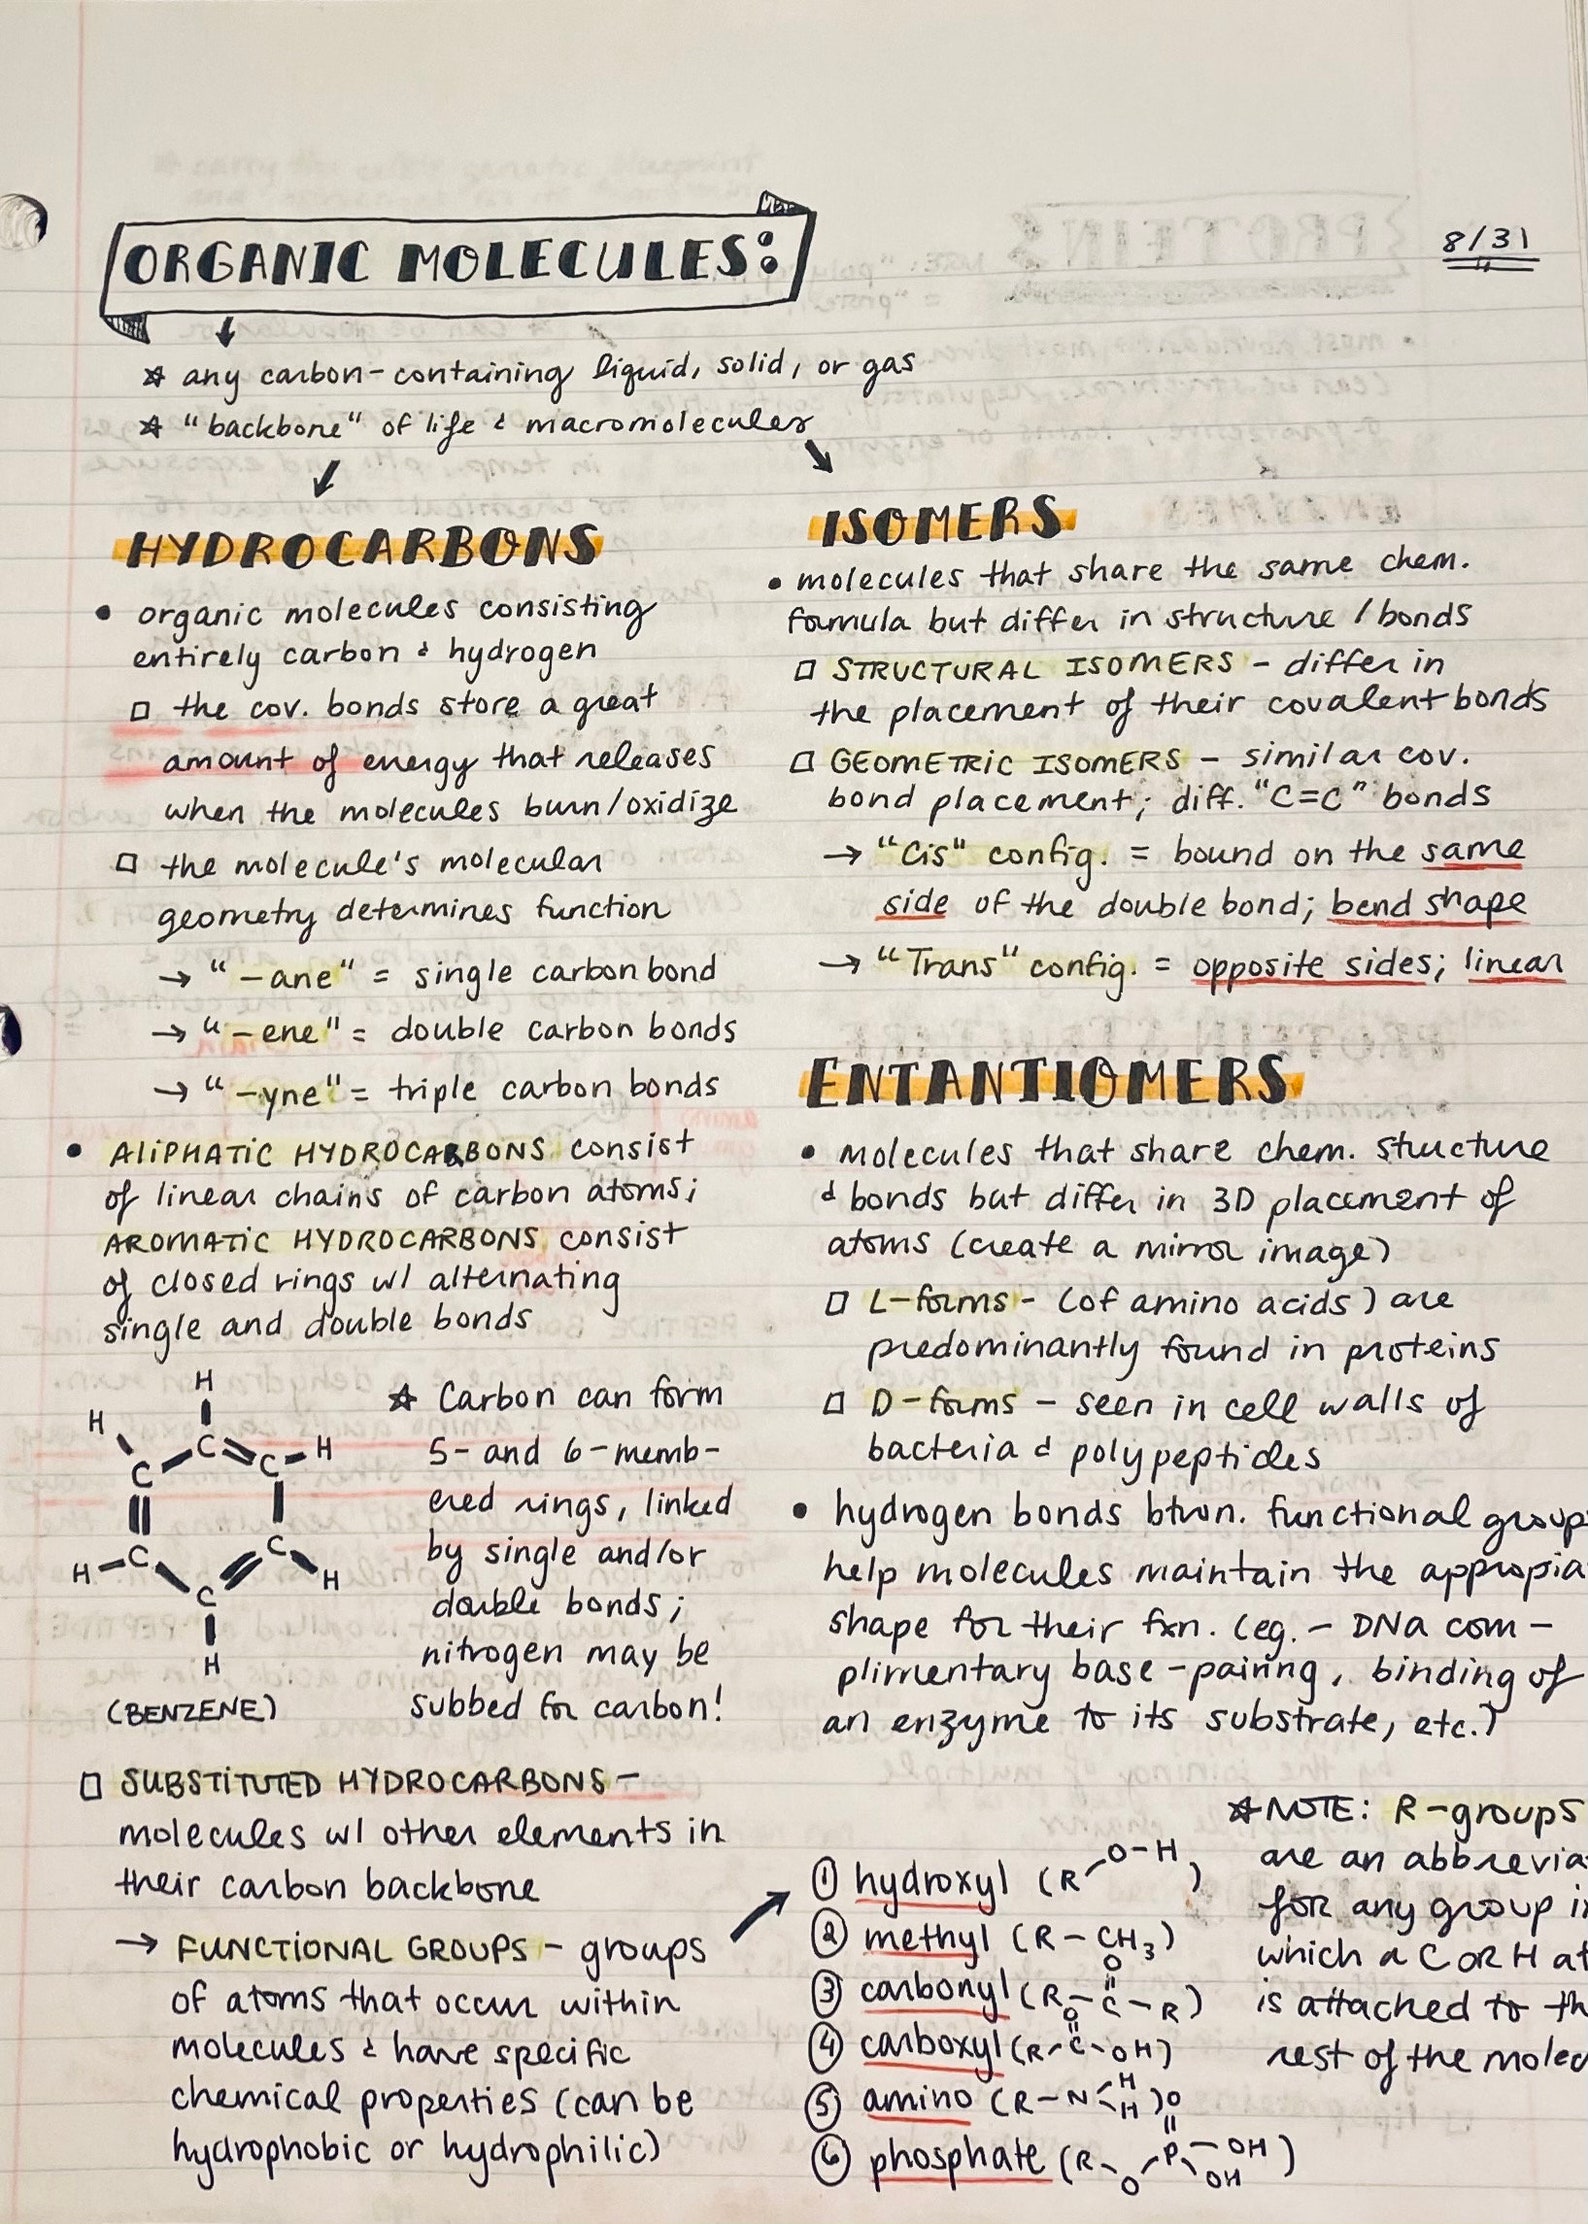 ORGANIC MOLECULES:
8/31
☆ any carbon-containing liquid, solid, or gas
☆ "backbone" of life & macromolecules
HYDROCARBONS
• organic molecules consisting
entirely carbon & hydrogen
□ the cov. bonds store a great
amount of energy that releases
when the molecules burn/oxidize
□ the molecule's molecular
geometry determines function
→ "-ane" = single carbon bond
→ "-ene" = double carbon bonds
→ "-yne" = triple carbon bonds
• ALIPHATIC HYDROCARBONS consist
of linear chains of carbon atoms;
AROMATIC HYDROCARBONS consist
of closed rings w/ alternating
single and double bonds
H
H
C
C
H
C
C
C
H
C
H
H
(BENZENE)
☆ Carbon can form
5- and 6-memb-
ered rings, linked
by single and/or
double bonds;
nitrogen may be
subbed for carbon!
□ SUBSTITUTED HYDROCARBONS -
molecules w/ other elements in
their carbon backbone
→ FUNCTIONAL GROUPS - groups
of atoms that occur within
molecules & have specific
chemical properties (can be
hydrophobic or hydrophilic)
ISOMERS
• molecules that share the same chem.
formula but differ in structure / bonds
□ STRUCTURAL ISOMERS - differ in
the placement of their covalent bonds
□ GEOMETRIC ISOMERS - similar cov.
bond placement; diff. "C=C" bonds
→ "Cis" config. = bound on the same
side of the double bond; bend shape
→ "Trans" config. = opposite sides; linear
ENTANTIOMERS
• molecules that share chem. structure
& bonds but differ in 3D placement of
atoms (create a mirror image)
□ L-forms - (of amino acids) are
predominantly found in proteins
□ D-forms - seen in cell walls of
bacteria & polypeptides
• hydrogen bonds btwn. functional group
help molecules maintain the appropia
shape for their fxn. (eg. - DNA com-
plimentary base-pairing, binding of
an enzyme to its substrate, etc.)
① hydroxyl (R-O-H)
② methyl (R-CH3)
③ carbonyl (R-C-R) O
④ carboxyl (R-C-OH) O
⑤ amino (R-N H H)
⑥ phosphate (R-O-P-OH OH) O
☆NOTE: R-groups
are an abbrevia
for any group i
which a C or H at
is attached to th
rest of the molec